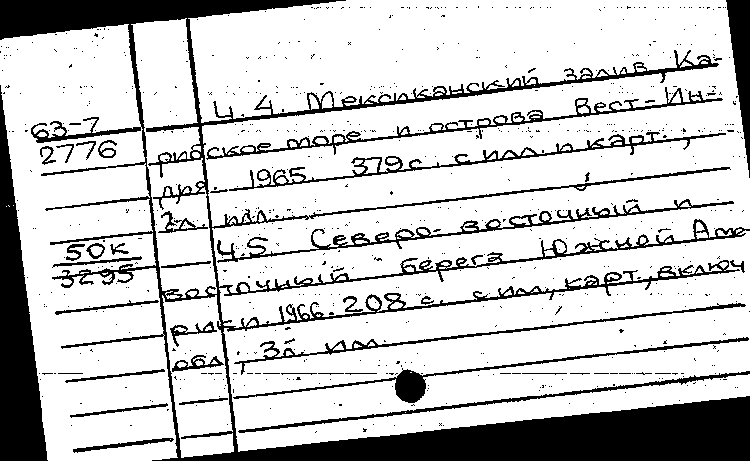 Ч. 4. Мексиканский залив, Ка-
63-7
2776 рибское море и острова Вест-Ин-
дия. 1965. 379 с. с илл. и карт.;
2 л. илл.
50К Ч.5. Северо-восточный и
3295 восточный берега Южной Аме-
рики. 1966. 208 с. с ил., карт., включ
обл.; 3 л. илл.